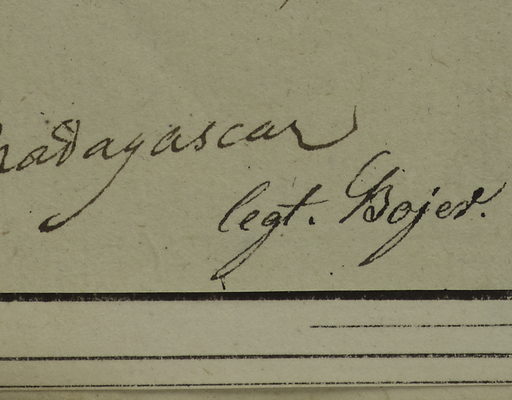 Madagascar
legt. Bojer.